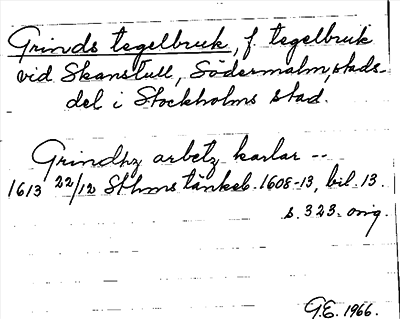 Grinds tegelbruk, f. tegelbruk
vid Skanstull, Södermalm, stads-
del i Stockholms stad.
Grindhz arbetz karlar --
1613 22/12 Sthms tänkeb. 1608-13, bil. 13.
s. 323. orig.
G.E. 1966.